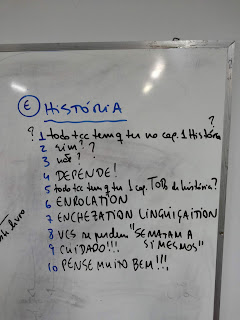 E HISTÓRIA
?
? 1 todo tcc tem q ter no cap. 1 História
2 sim? ?
3 não?
4 DEPENDE!
5 todo tcc tem q ter 1 cap. TODO de história?
6 ENROLATION
7 ENCHEZATION LINGUIÇAITION
8 VCS se perdem "SEMATAM A
SI MESMOS"
9 CUIDADO!!!
10 PENSE MUITO BEM!!!
livro